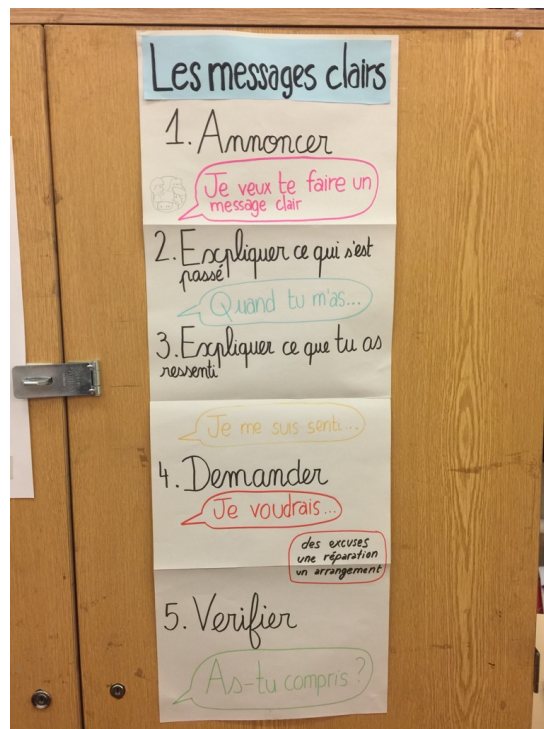 Les messages clairs
1. Annoncer
Je veux te faire un
message clair
2. Expliquer ce qui s'est
passé
Quand tu m'as...
3. Expliquer ce que tu as
ressenti
Je me suis senti...
4. Demander
Je voudrais...
des excuses
une réparation
un arrangement
5. Verifier
As-tu compris ?